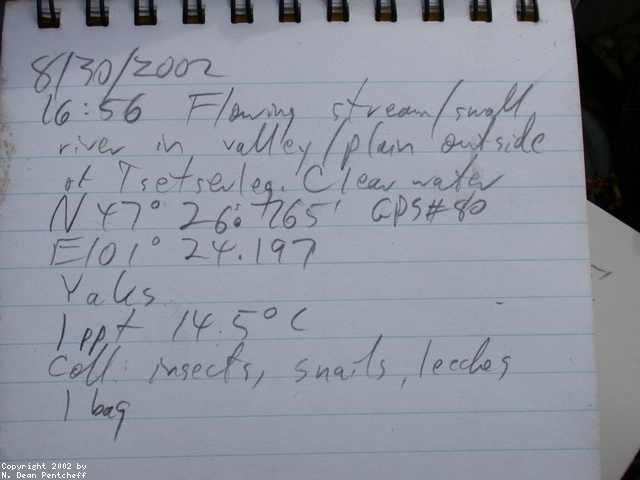 8/30/2002
16:56 Flowing stream/small
river in valley/plain outside
of Tsetserleg. Clear water
N 47° 26.765' GPS#80
E101° 24.197
Yaks
1ppt 14.5°C
Coll: insects, snails, leeches
1 bag
Copyright 2002 by
N. Dean Pentcheff